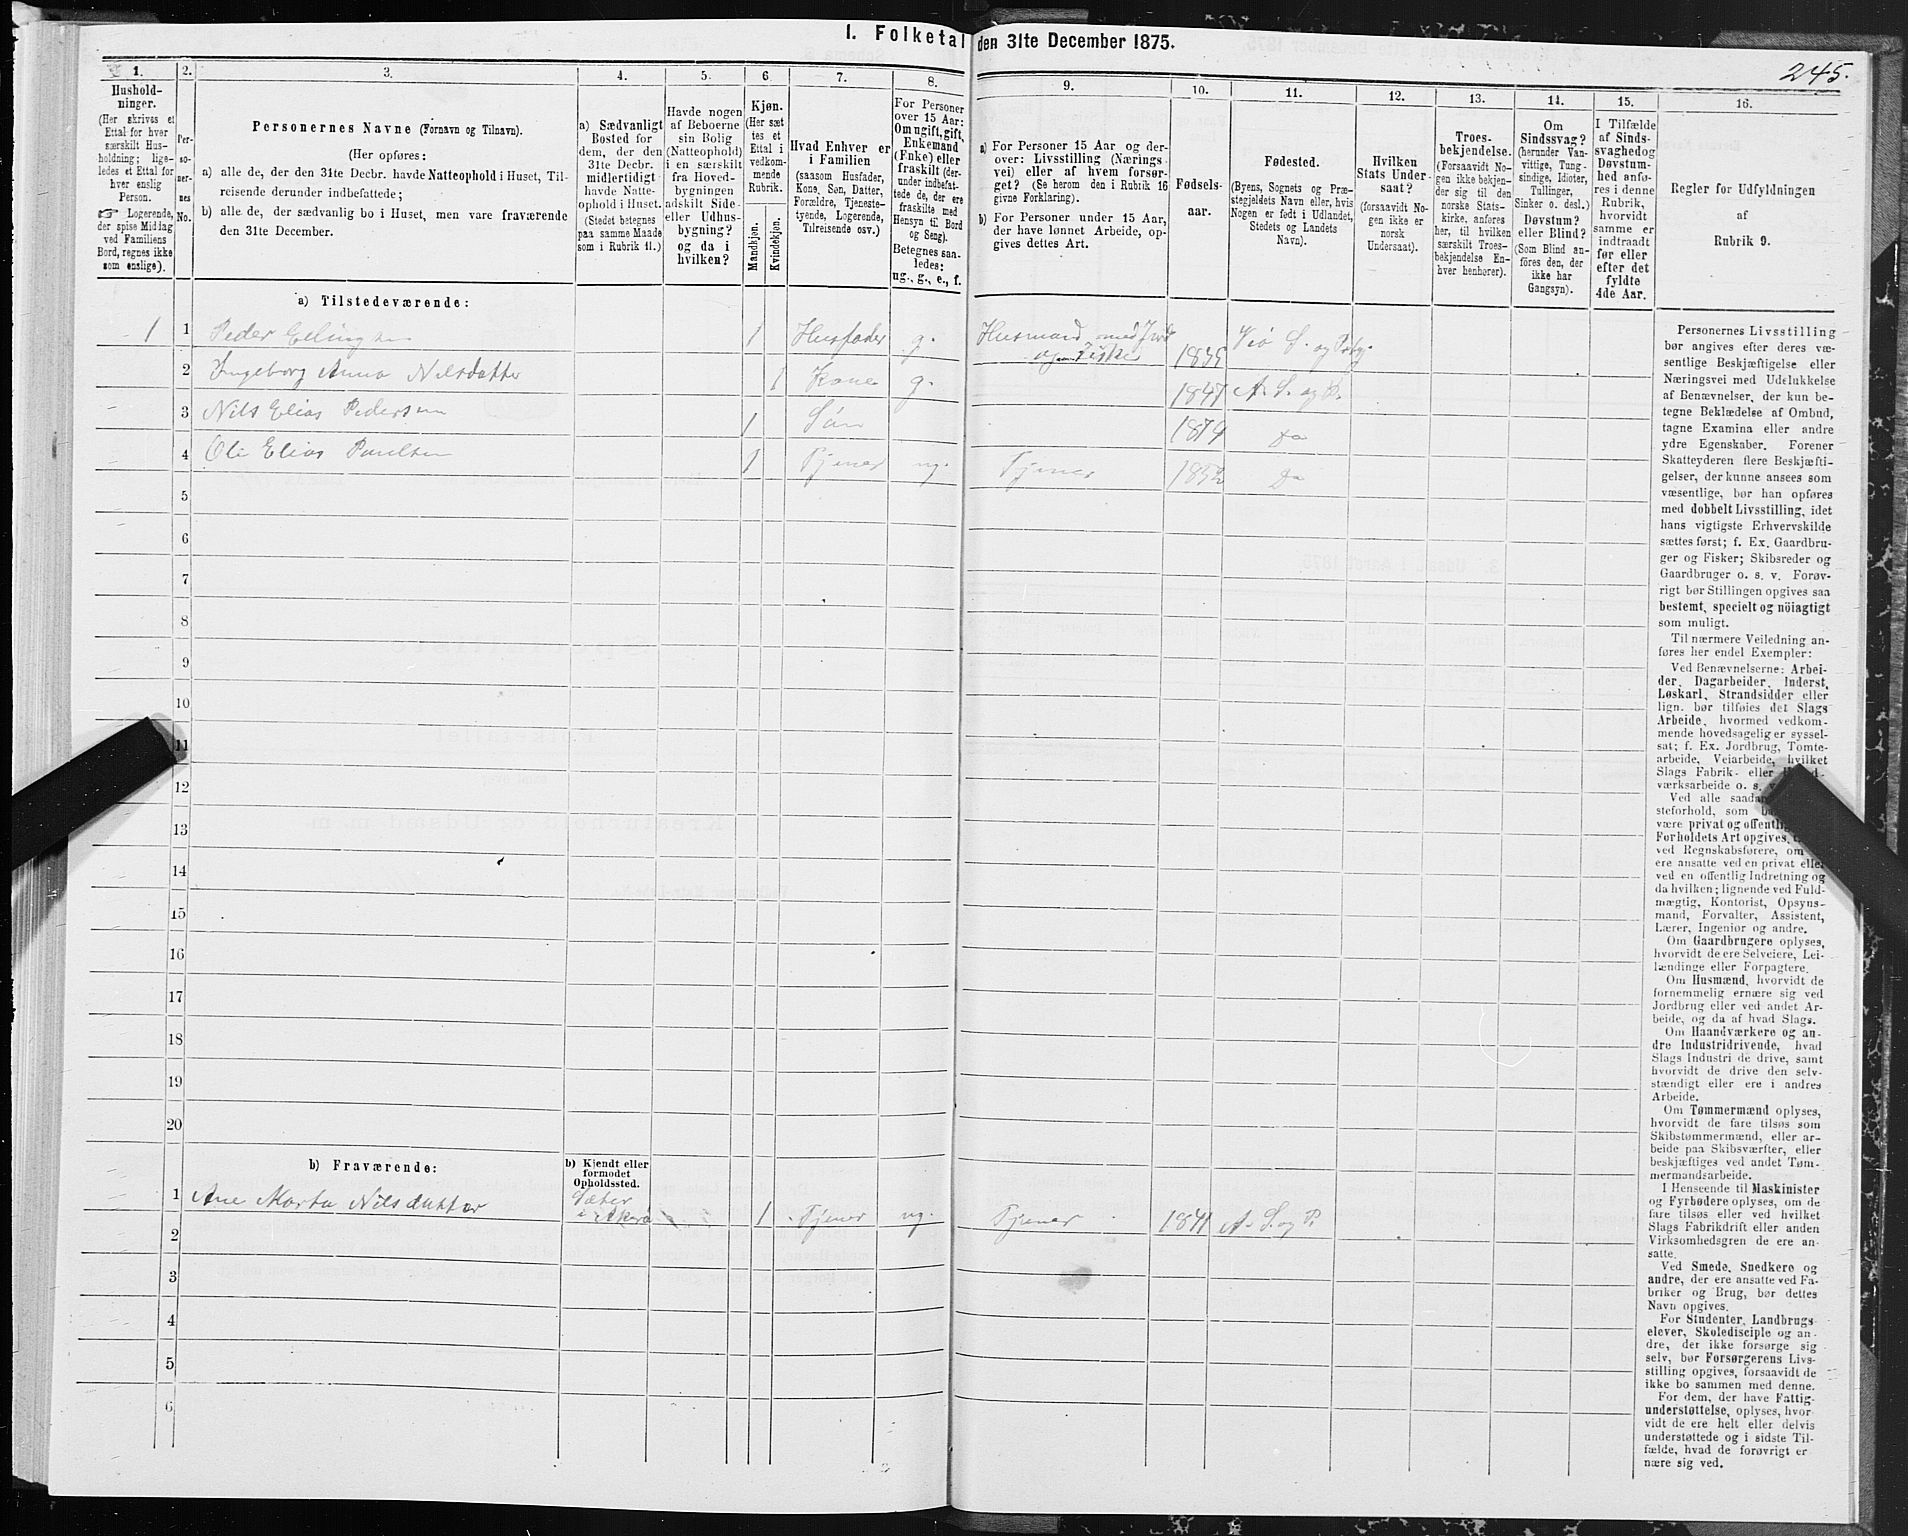 1. Folketal den 31te December 1875.
245.
1. 2. 3. 4. 5. 6. 7. 8. 9. 10. 11. 12. 13. 14. 15. 16.
Hushold-
ninger.
(Her skrives et
Ettal for hver
særskilt Hus-
holdning; lige-
ledes et Ettal for
hver enslig
Person.
☞ Logerende,
der spise Middag
ved Familiens
Bord, regnes ikke
som enslige).
Per-
so-
ner-
nes
No.
Personernes Navne (Fornavn og Tilnavn).
(Her opføres:
a) alle de, der den 31te Decbr. havde Natteophold i Huset, Til-
reisende derunder indbefattede;
b) alle de, der sædvanlig bo i Huset, men vare fraværende
den 31te December.
a) Sædvanligt
Bosted for
dem, der den
31te Decbr.
midlertidigt
havde Natte-
ophold i Huset.
(Stedet betegnes
paa samme Maade
som i Rubrik 11.)
Havde nogen
af Beboerne
sin Bolig
(Natteophold)
i en særskilt
fra Hoved-
bygningen
adskilt Side-
eller Udhus-
bygning?
og da i
hvilken?
Kjøn.
(Her sæt-
tes et
Ettal i
vedkom-
mende
Rubrik.
Mandkjøn.
Kvindekjøn.
Hvad Enhver er
i Familien
(saasom Husfader,
Kone, Søn, Datter,
Forældre, Tjeneste-
tyende, Logerende,
Tilreisende osv.)
For Personer
over 15 Aar:
Om ugift, gift,
Enkemand
(Enke) eller
fraskilt (der-
under indbefat-
tede de, der ere
fraskilte med
Hensyn til Bord
og Seng).
Betegnes saa-
ledes:
ug., g., e., f.
a) For Personer 15 Aar og der-
over: Livsstilling (Nærings-
vei) eller af hvem forsør-
get? (Se herom den i Rubrik 16
givne Forklaring).
b) For Personer under 15 Aar,
der have lønnet Arbeide, op-
gives dettes Art.
Fødsels-
aar.
Fødested.
(Byens, Sognets og Præ-
stegjeldets Navn eller, hvis
Nogen er født i Udlandet,
Stedets og Landets
Navn).
Hvilken
Stats Under-
saat?
(forsaavidt No-
gen ikke er
norsk
Undersaat).
Troes-
bekjendelse.
(Forsaavidt No-
gen ikke bekjen-
der sig til den
norske Stats-
kirke, anføres
her, til hvilken
særskilt Troes-
bekjendelse En-
hver henhører).
Om
Sindssvag?
(herunder Van-
vittige, Tung-
sindige, Idioter,
Tullinger,
Sinker o. desl.)
Døvstum?
eller Blind?
(Som Blind an-
føres den, der
ikke har
Gangsyn).
I Tilfælde
af Sinds-
svaghed og
Døvstum-
hed anfø-
res i denne
Rubrik,
hvorvidt
samme er
indtraadt
før eller
efter det
fyldte
4de Aar.
Regler for Udfyldningen
af
Rubrik 9.
a) Tilstedeværende:
1 1 Peder 1 Husfader g. Husmand med Jord
og Fiske 1835 Veø S. og
2 Ingeborg Anna Nilsdatter 1 Kone g. 1847 A. S. og P.
3 Nils Elias Pedersen 1 Søn 1874 Do
4 Ole Elias Paulsen 1 Tjener ug. Tjener 1852 Do
5
6
7
8
9
10
11
12
13
14
15
16
17
18
19
20
b) Fraværende:
b) Kjendt eller
formodet
Opholdssted.
1 Ane Marta Nilsdatter Sæter
i Akerø 1 Tjener ug. Tjener 1841 A. S. og P.
2
3
4
5
6
Personernes Livsstilling
bør angives efter deres væ-
sentlige Beskjæftigelse eller
Næringsvei med Udelukkelse
af Benævnelser, der kun be-
tegne Beklædelse af Ombud,
tagne Examina eller andre
ydre Egenskaber. Forener
Skatteyderen flere Beskjæfti-
gelser, der kunne ansees som
væsentlige, bør han opføres
med dobbelt Livsstilling, idet
hans vigtigste Erhvervskilde
sættes først; f. Ex. Gaardbru-
ger og Fisker; Skibsreder og
Gaardbruger o. s. v. Forøv-
rigt bør Stillingen opgives saa
bestemt, specielt og nöiagtigt
som muligt.
Til nærmere Veiledning an-
føres her endel Exempler:
Ved Benævnelserne: Arbei-
der, Dagarbeider, Inderst,
Løskarl, Strandsidder eller
lign. bør tilføies det Slags
Arbeide, hvormed vedkom-
mende hovedsagelig er syssel-
sat; f. Ex. Jordbrug, Tomte-
arbeide, Veiarbeide, hvilket
Slags Fabrik- eller
værksarbeide o. s.
Ved alle
steforhold, som
være privat og
Forholdets Art opgives,
ved Regnskabsførere, om
ere ansatte ved en privat eller
ved en offentlig Indretning og
da hvilken; lignende ved Fuld-
mægtig, Kontorist, Opsyns-
mand, Forvalter, Assistent,
Lærer, Ingeniør og andre.
Om Gaardbrugere oplyses,
hvorvidt de ere Selveiere, Lei-
lændinge eller Forpagtere.
Om Husmænd, hvorvidt de
fornemmelig ernære sig ved
Jordbrug eller ved andet Ar-
beide, og da af hvad Slags.
Om Haandværkere og an-
dre Industridrivende, hvad
Slags Industri de drive, samt
hvorvidt de drive den selv-
stændigt eller ere i andres
Arbeide.
Om Tømmermænd oplyses,
hvorvidt de fare tilsøs som
Skibstømmermænd, eller ar-
beide paa Skibsværfter, eller
beskjæftiges ved andet Tøm-
mermandsarbeide.
I Henseende til Maskinister
og Fyrbødere oplyses, om de
fare tilsøs eller ved hvilket
Slags Fabrikdrift eller anden
Virksomhedsgren de ere an-
satte.
Ved Smede, Snedkere og
andre, der ere ansatte ved Fa-
briker og Brug, bør dettes
Navn opgives.
For Studenter, Landbrugs-
elever, Skoledisciple og an-
dre, der ikke forsørge sig
selv, bør Forsørgerens Livs-
stilling opgives, forsaavidt de
ikke bo sammen med denne.
For dem, der have Fattig-
understøttelse, oplyses, hvor-
vidt de ere helt eller delvis
understøttede og i sidste Til-
fælde, hvad de forøvrigt er-
nære sig ved.